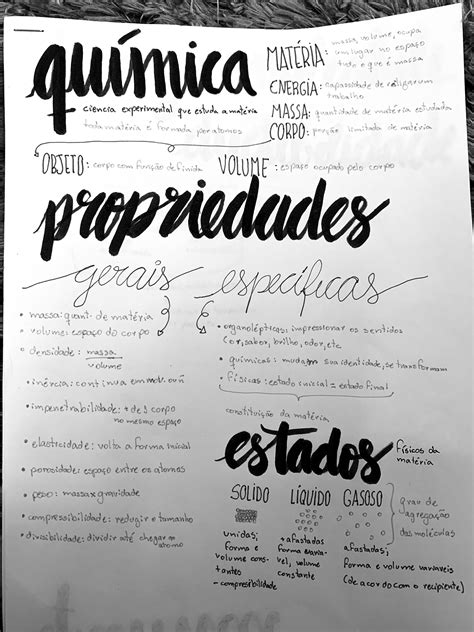 química
ciencia experimental que estuda a matéria
toda matéria é formada por atomos
MATÉRIA: massa, volume, ocupa
um lugar no espaço
tudo o que é massa
ENERGIA: capacidade de realizar um
trabalho
MASSA: quantidade de matéria estudada
CORPO: porção limitada de matéria
OBJETO: corpo com função definida
VOLUME: espaço ocupado pelo corpo
propriedades
gerais
• massa: quant. de matéria
• volume: espaço do corpo
• densidade: massa
volume
• inércia: continua em mov. ou
• impenetrabilidade: + de 1 corpo
no mesmo espaço
• elasticidade: volta a forma inicial
• porosidade: espaço entre os atomos
• peso: massa x gravidade
• compressibilidade: reduzir o tamanho
• divisibilidade: dividir até chegar no
atomo
específicas
• organolépticas: impressionar os sentidos
(cor, sabor, brilho, odor, etc.
• químicas: mudam sua identidade, se transformam
• físicas: estado inicial = estado final
constituição da matéria
estados
físicos da
matéria
SOLIDO
unidas;
forma e
volume cons-
tantes
- compressibilidade
LÍQUIDO
+ afastadas
forma varia-
vel, volume
constante
GASOSO
afastadas;
forma e volume variaveis
(de acordo com o recipiente)
grau de
agregação
das moléculas